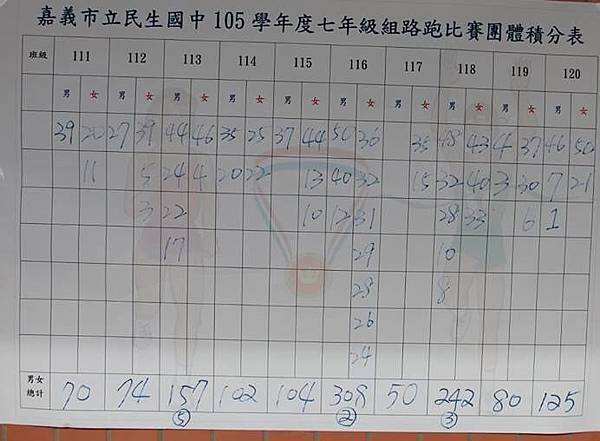 嘉義市立民生國中 105 學年度七年級組路跑比賽團體積分表
班級 111 112 113 114 115 116 117 118 119 120
男 女 男 女 男 女 男 女 男 女 男 女 男 女 男 女 男 女 男 女
39 20 27 39 44 46 35 25 37 44 50 36 35 48 43 4 37 46 50
11 5 24 4 20 22 13 40 32 15 32 40 3 30 7 21
3 22 10 12 31 28 33 6 1
17 29 10
28 8
26
24
男女
總計 70 74 157 102 104 308 50 242 80 125
⑤ ② ③